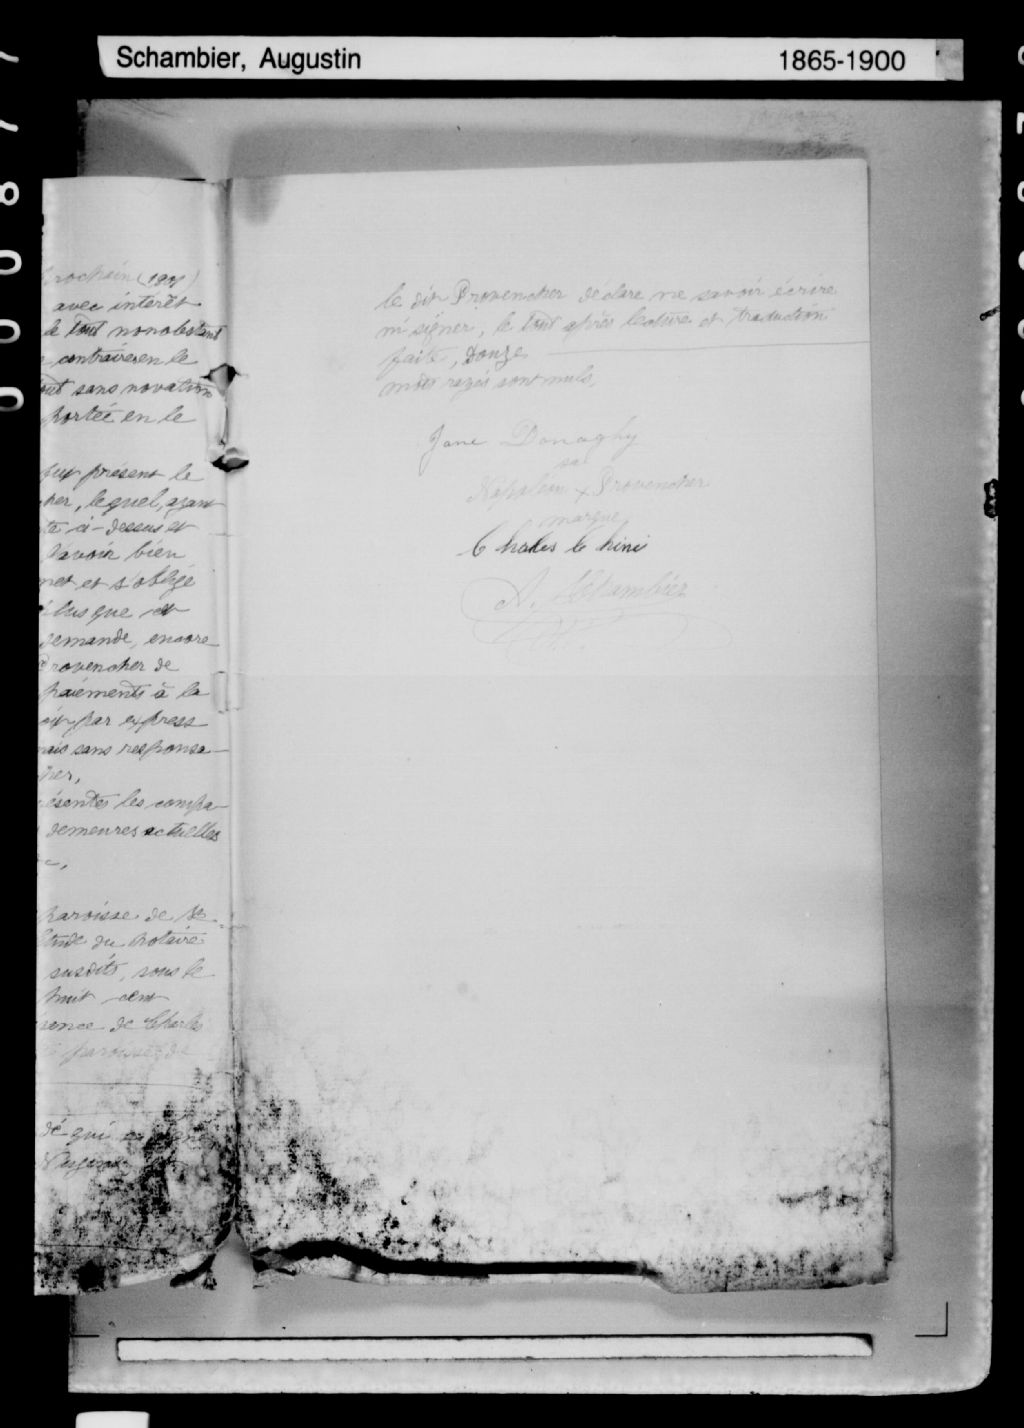 Schambier, Augustin 1865-1900
00087
prochain (1901)
avec intérêt
le tout nonobstant
contraires en le
tout sans novation
portée en le
fut présent le
cher, lequel, ayant
ci-dessus et
l'avoir bien
met et s'oblige
plus que
demande, encore
Provencher de
paiements à la
par express
mais sans responsa-
cher,
présentes les compa-
demeures actuelles
paroisse de St
étude du notaire
susdits, sous le
huit cent
présence de Charles
paroisse de
qui
le dit Provencher déclare ne savoir écrire
ni signer, le tout après lecture et traduction
faite, Douze
mots rayés sont nuls,
Jane Donaghy
sa
Napoléon x Provencher
marque
Charles Chini
A. Schambier
N.P.